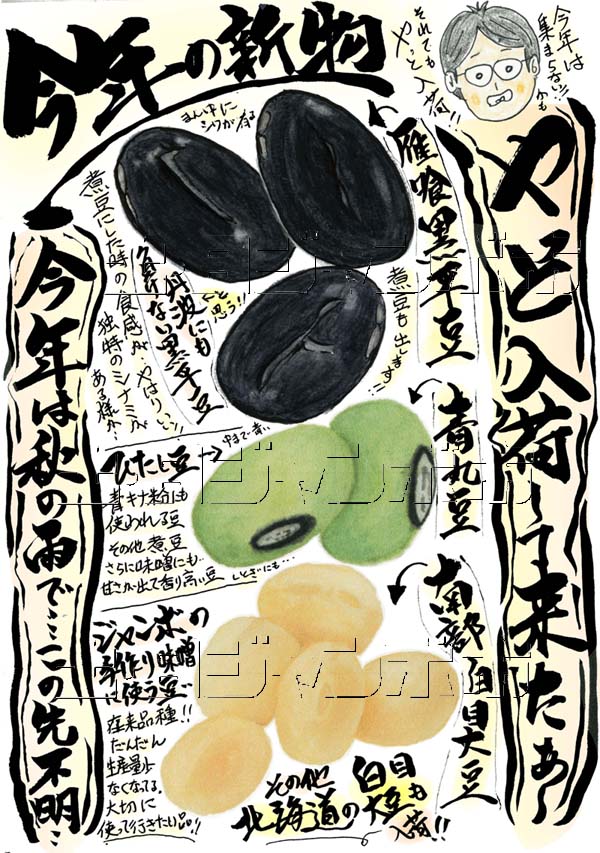 今年の新物
今年は
集まらない!!かも
それでも
やっと入荷!!
やっと入荷して来たぁ〜
まん中に
シワが有る
雁喰黒平豆
丹波にも
負けない黒平豆
と思う!!
煮豆も出します!!
煮豆にした時の食感が、やはりいい!!
独特のシナミが
ある様な…
今年は秋の雨で…この先不明…
青丸豆
中まで青い
ひたし豆→
青キナ粉にも
使われる豆
その他煮豆
さらに味噌にも…
甘さが出て香り高い豆
しとぎにも…
南部白目大豆
ジャンボの
手作り味噌
に使う豆
在来品種!!
だんだん
生産量少
なくなってる。
大切に
使って行きたい品!!
その他
北海道の白目大豆も
入荷!!
ニュージャンボホソ
ニュージャンボホソ
ニュージャンボホソ